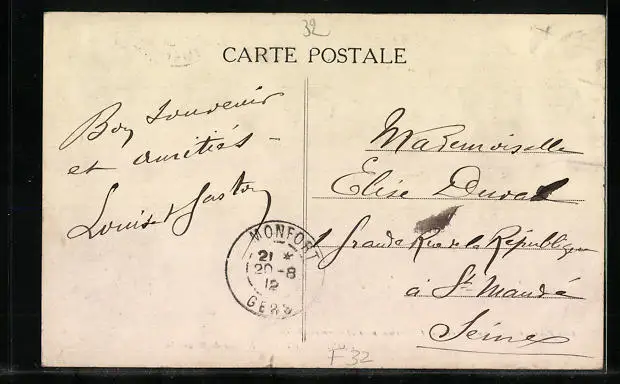 32
CARTE POSTALE
Bon souvenir
et amitiés -
Louis & Gaston
Mademoiselle
Elise Duval
1 Grande Rue de la République
à St Mandé
Seine
MONFORT
21 *
20-8
12
GERS
F32